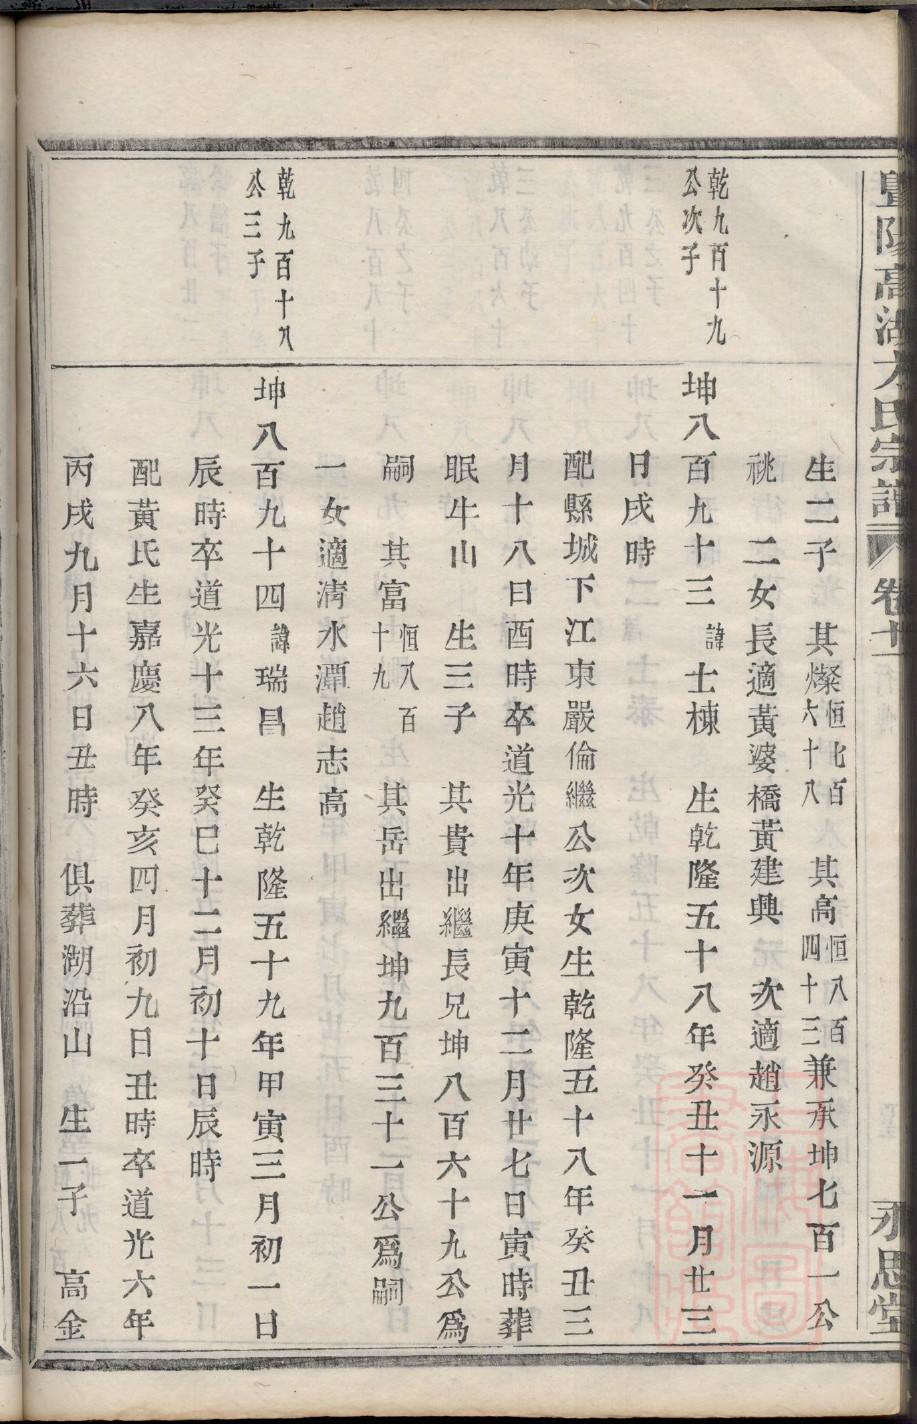 暨陽高湖方氏宗譜 卷十 永思堂
生二子 其燦恒七百六十八 其高恒八百四十三兼承坤七百一公
祧 二女長適黃婆橋黃建興 次適趙永源
乾九百十九公次子
坤八百九十三諱士棟 生乾隆五十八年癸丑十一月廿三
日戌時
配縣城下江東嚴倫繼公次女生乾隆五十八年癸丑三
月十八日酉時卒道光十年庚寅十二月廿七日寅時葬
眠牛山 生三子 其貴出繼長兄坤八百六十九公爲
嗣 其富恒八百十九 其岳出繼坤九百三十一公爲嗣
一女適淸水潭趙志高
乾九百十八公三子
坤八百九十四諱瑞昌 生乾隆五十九年甲寅三月初一日
辰時卒道光十三年癸巳十二月初十日辰時
配黃氏生嘉慶八年癸亥四月初九日丑時卒道光六年
丙戌九月十六日丑時 俱葬湖沿山 生一子 高金